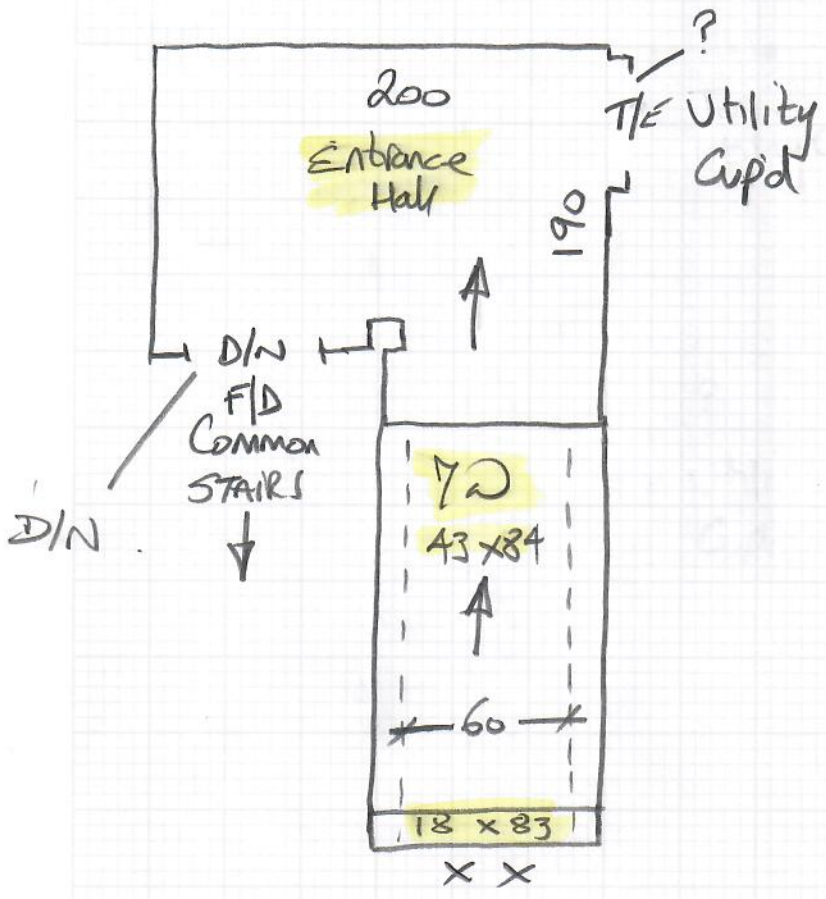 ?
200
T/E Utility
Cup'd
Entrance
Hall
190
D/N
F/D
Common
STAIRS
D/N
43 x 84
60
18 x 83
X X